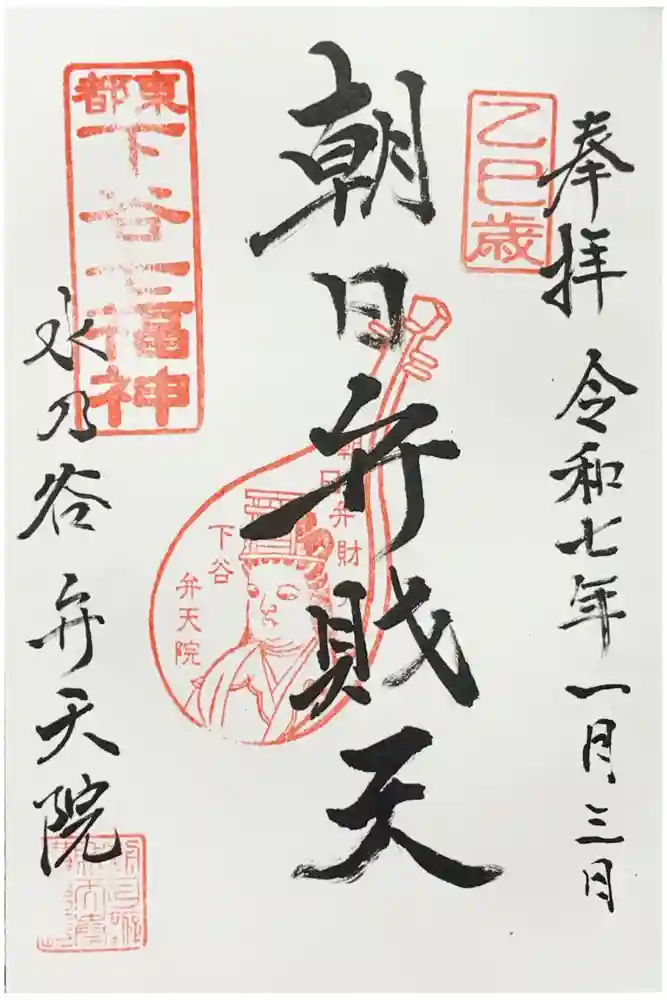 奉拝 令和七年一月三日
乙巳歳
朝日弁財天
朝日弁財
下谷
弁天院
東都
下谷七福神
水乃谷 弁天院